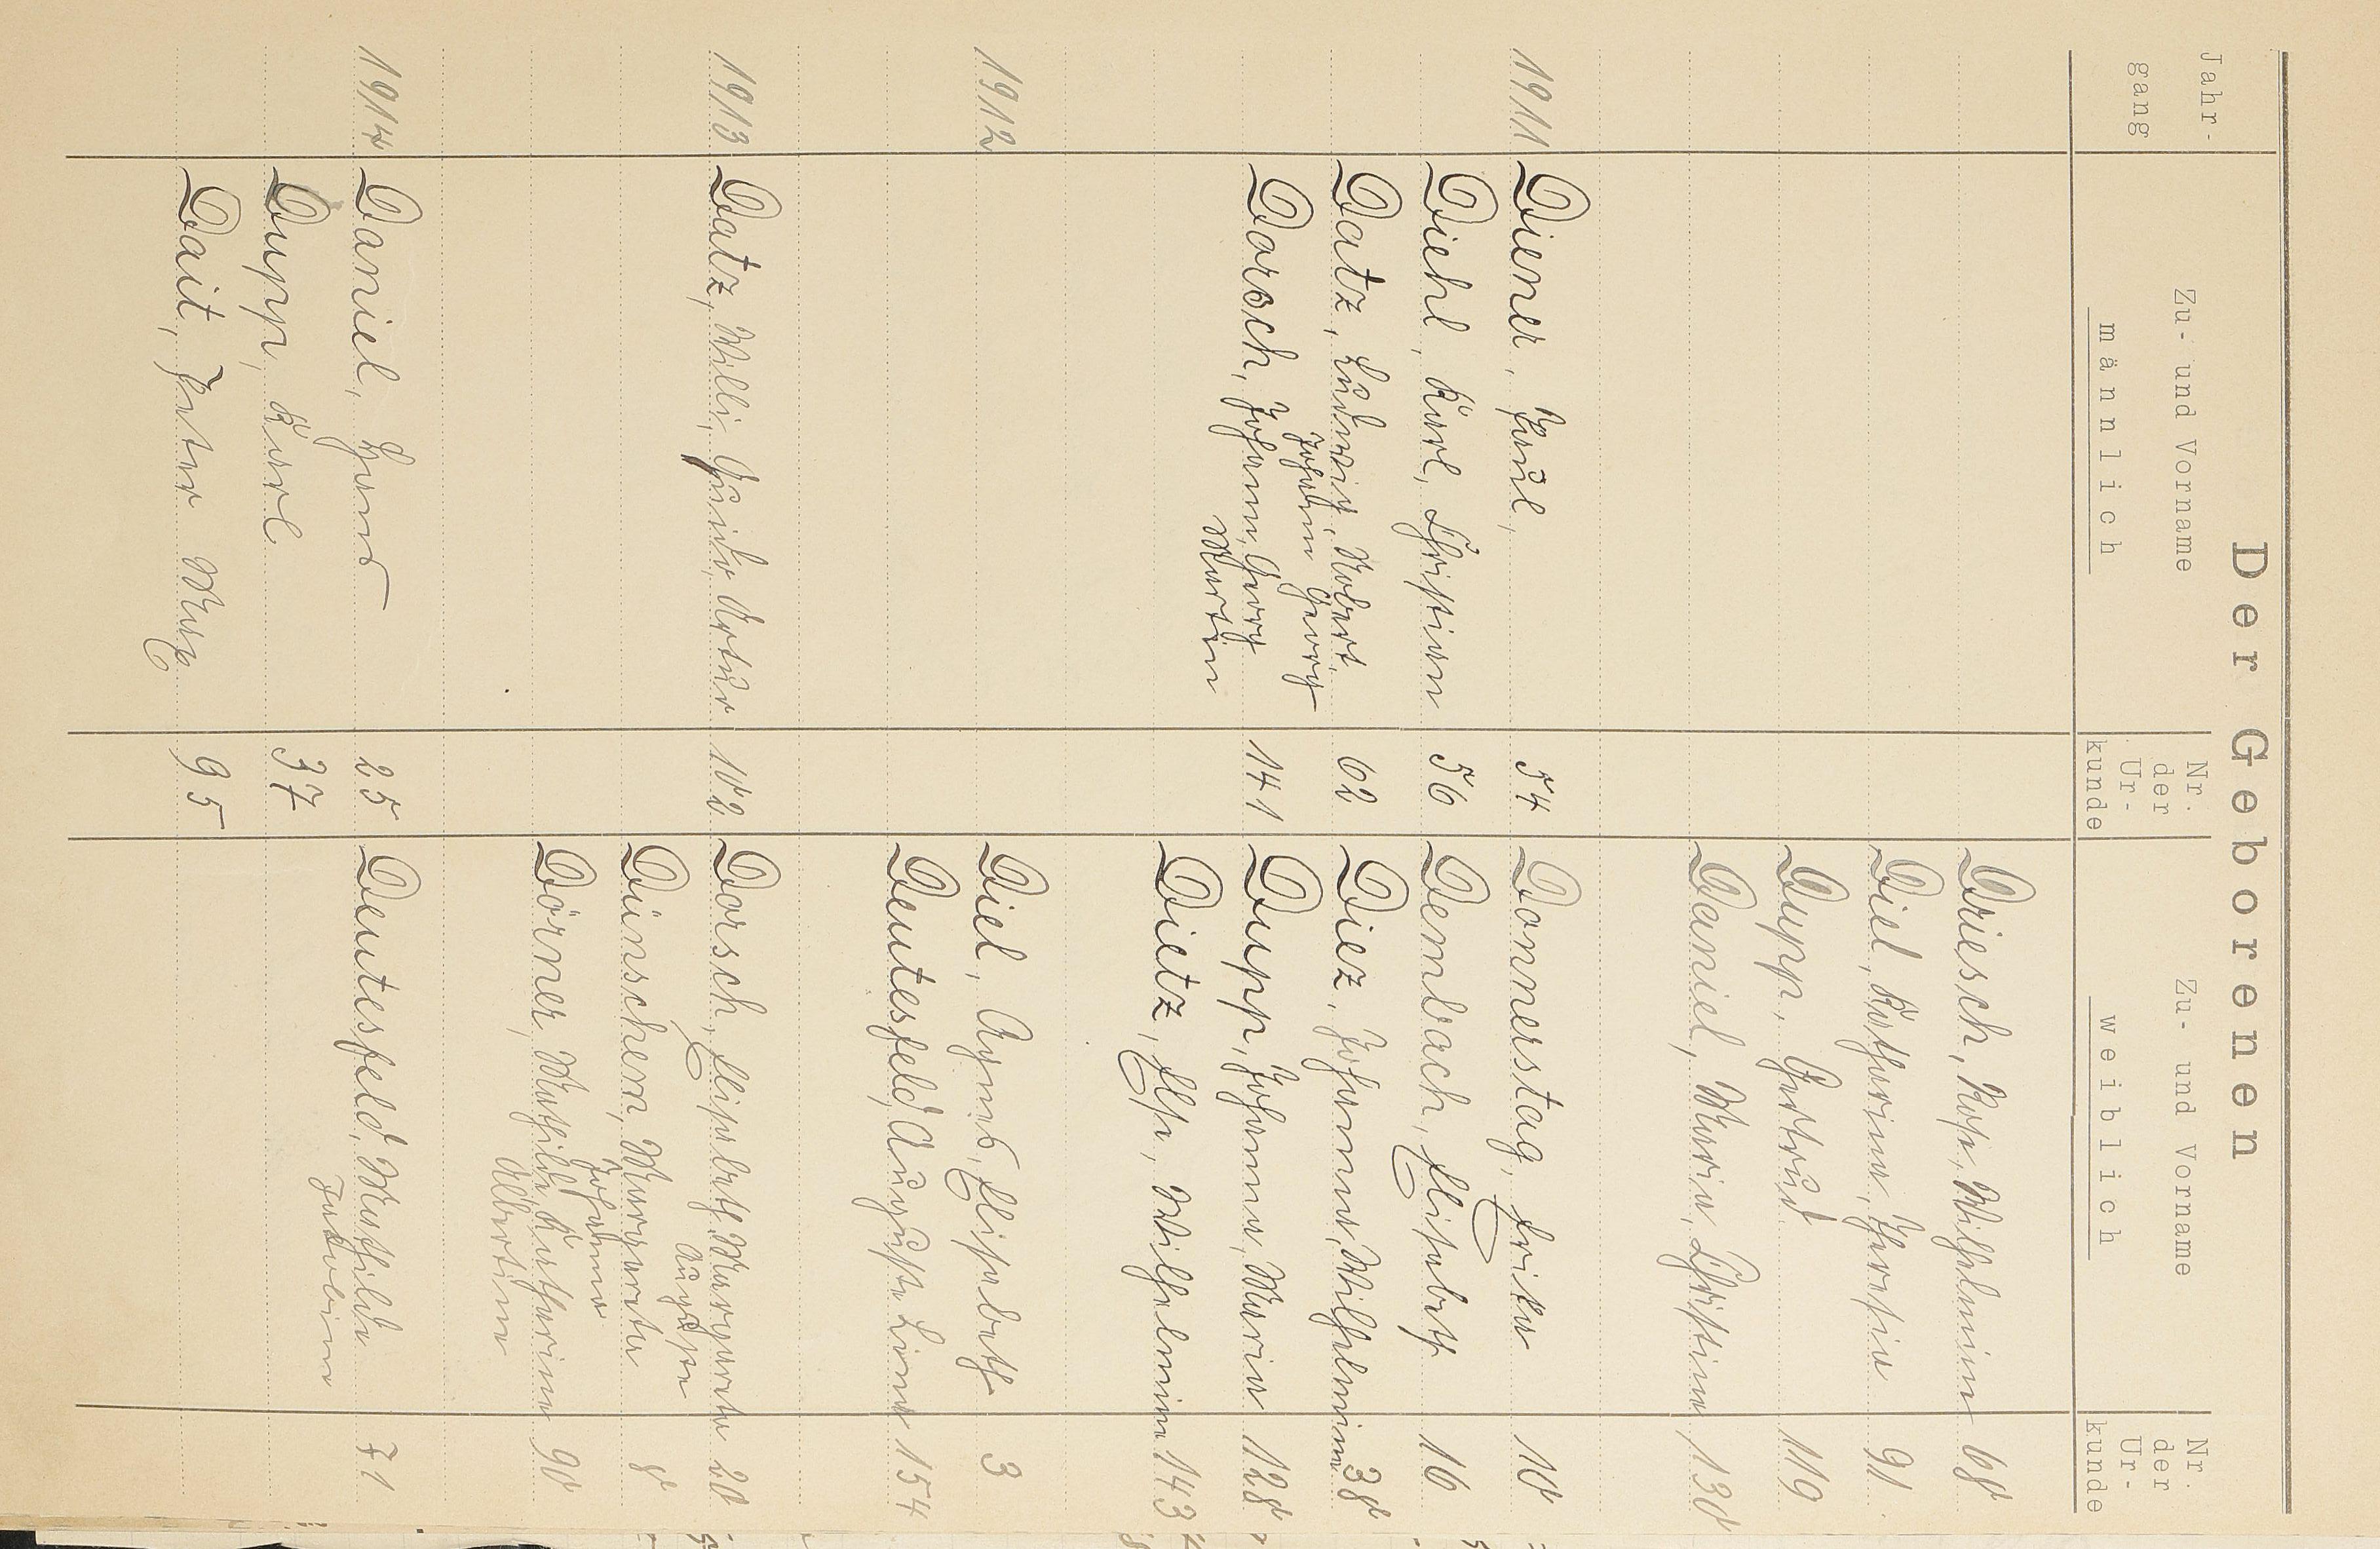 Der Geborenen
Jahr-
gang
Zu- und Vorname
männlich
Nr.
der
Ur-
kunde
Zu- und Vorname
weiblich
Nr.
der
Ur-
kunde
Driesch, Rosa, Wilhelmine 68
Diel, Katharina, Theresia 91
Dupp, Gertrud 119
Daniel, Maria, Christina 130
1911 Diener, Paul, 54 Donnerstag, Erika 10
Diehl, Karl, Christian 56 Dembach, Elisabeth 16
Datz, Ludwig, Robert 62 Diez, Johanna, Wilhelmine 38
Johann Georg
Dorsch, Johann, Georg 141 Dupp, Johanna, Maria 128
Martin
Dietz, Else, Wilhelmine 143
1912 Diel, Agnes, Elisabeth 3
Deutesfeld, Auguste Lina 154
1913 Datz, Willi, Guido, Artur 102 Dorsch, Elisabeth, Margareta 20
Auguste
Dünschem, Margareta 8
Johanna
Dörner, Mathilde Katharina 90
Albertine
1914 Daniel, Hans 25 Deutesfeld, Mathilde 71
Jakobine
Dupp, Karl 37
Dait, Peter Max 95